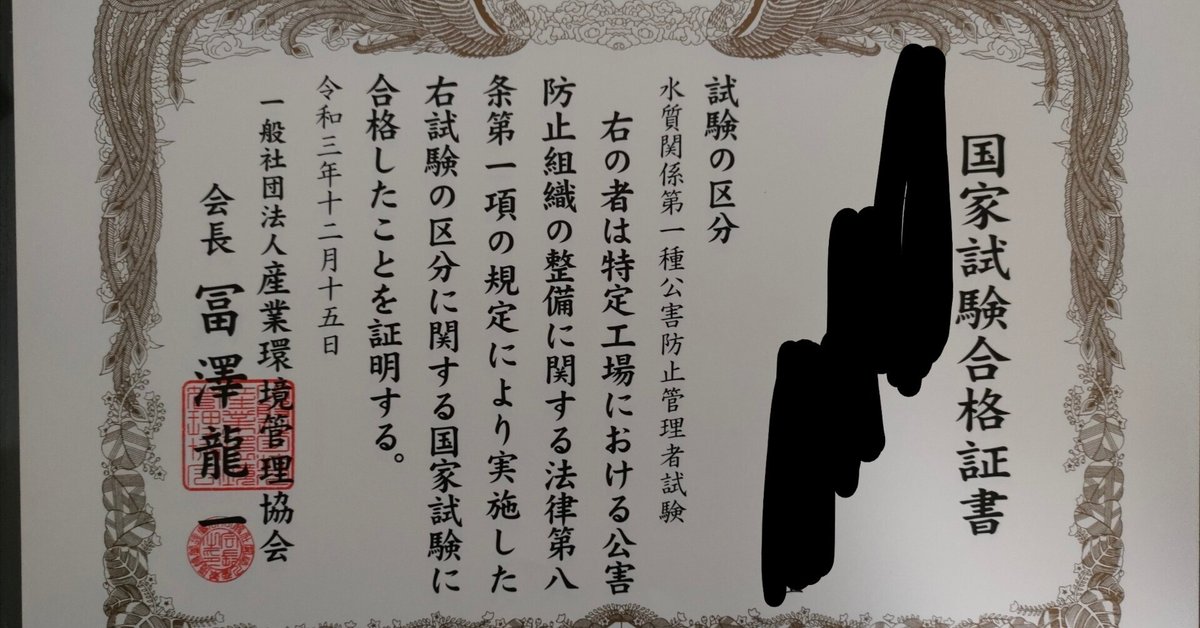 国家試験合格証書
試験の区分
水質関係第一種公害防止管理者試験
右の者は特定工場における公害
防止組織の整備に関する法律第八
条第一項の規定により実施した
右試験の区分に関する国家試験に
合格したことを証明する。
令和三年十二月十五日
一般社団法人産業環境管理協会
会長 冨澤龍一